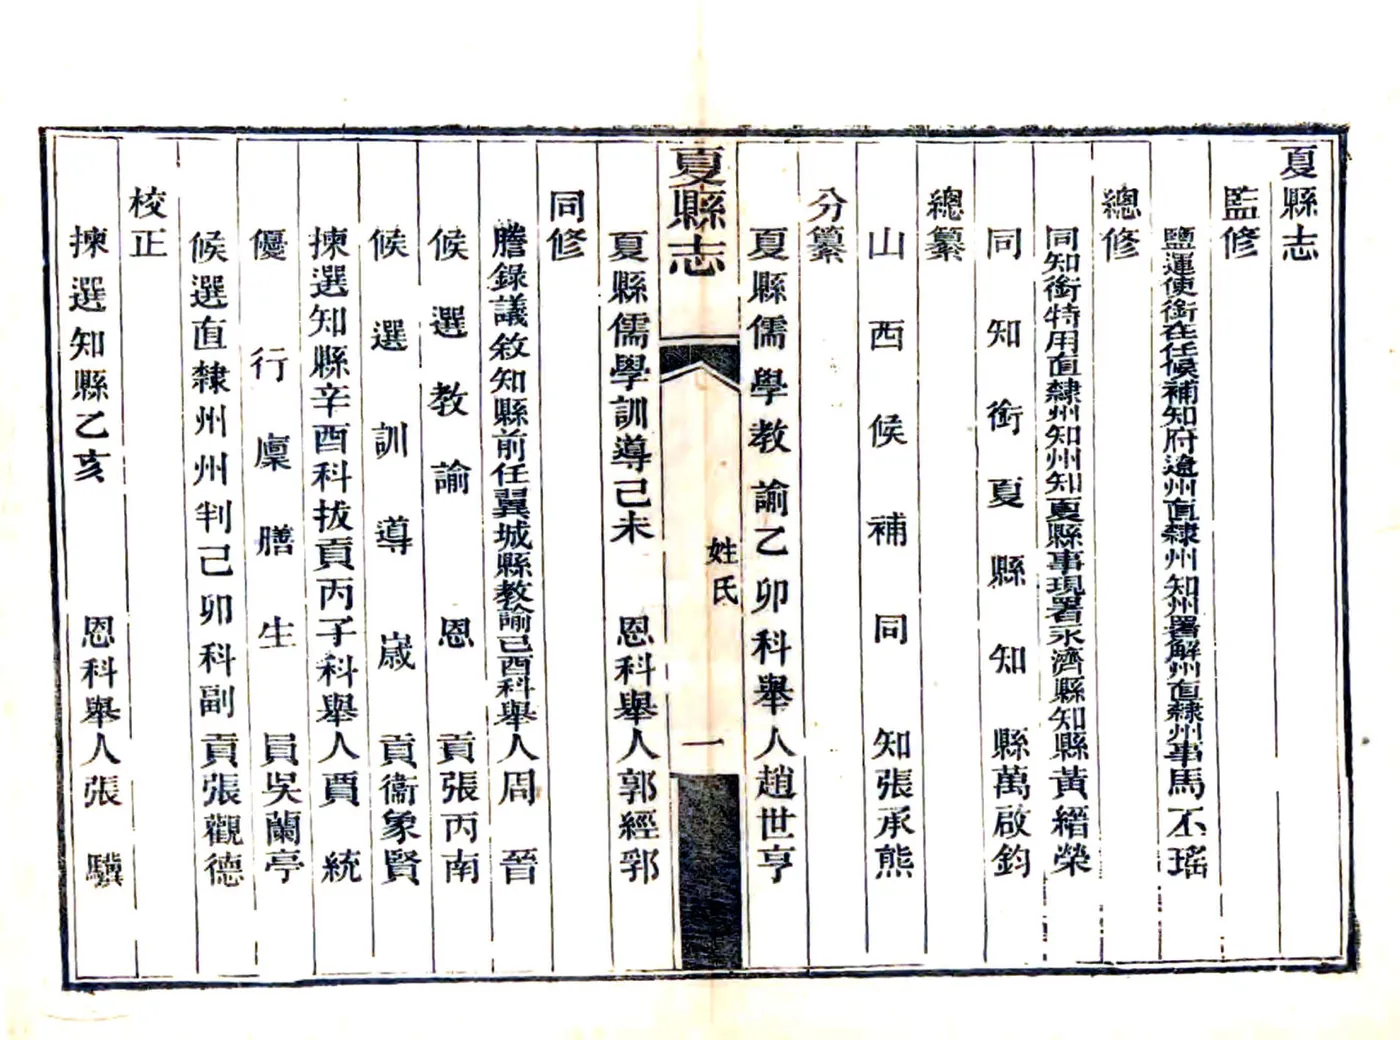 夏縣志
監修
鹽運使銜在任候補知府遼州直隸州知州署解州直隸州事馬丕瑤
總修
同知銜特用直隸州知州知夏縣事現署永濟縣知縣黃縉榮
同知銜夏縣知縣萬啟鈞
總纂
山西候補同知張承熊
分纂
夏縣儒學教諭乙卯科舉人趙世亨
夏縣志
姓氏
一
夏縣儒學訓導己未 恩科舉人郭經郛
同修
謄錄議敘知縣前任翼城縣教諭己酉科舉人周晉
候選教諭恩貢張丙南
候選訓導歲貢衞象賢
揀選知縣辛酉科拔貢丙子科舉人賈統
優行廩膳生員吳蘭亭
候選直隸州州判己卯科副貢張觀德
校正
揀選知縣乙亥 恩科舉人張驥